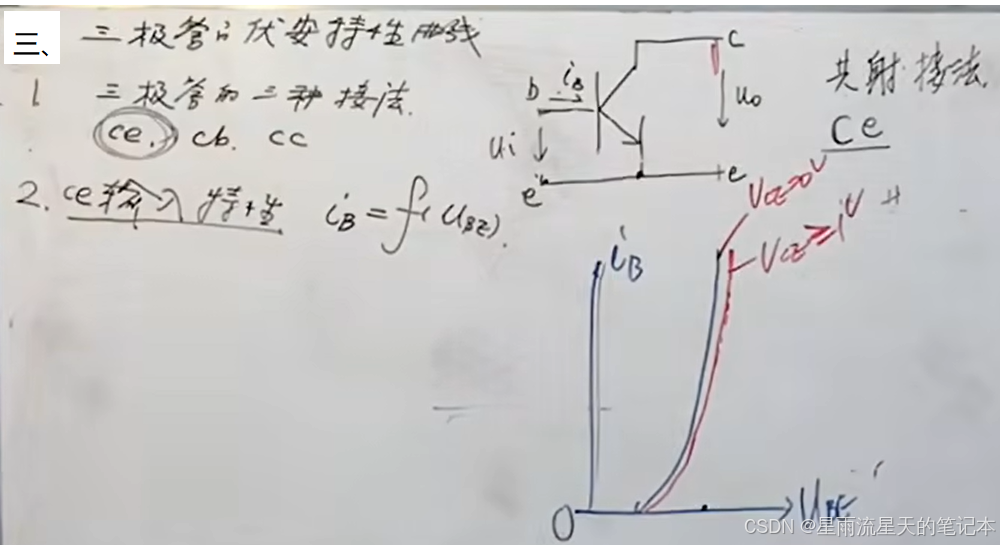 三、三极管的伏安特性曲线
1 三极管的三种接法.
ce. cb. cc
2. ce输入特性 iB = f(uBE).
c
b
iB
ui
uo
e
e
共射接法
ce
VCE=0V
VCE≥1V
iB
O
UBE
CSDN @星雨流星天的笔记本